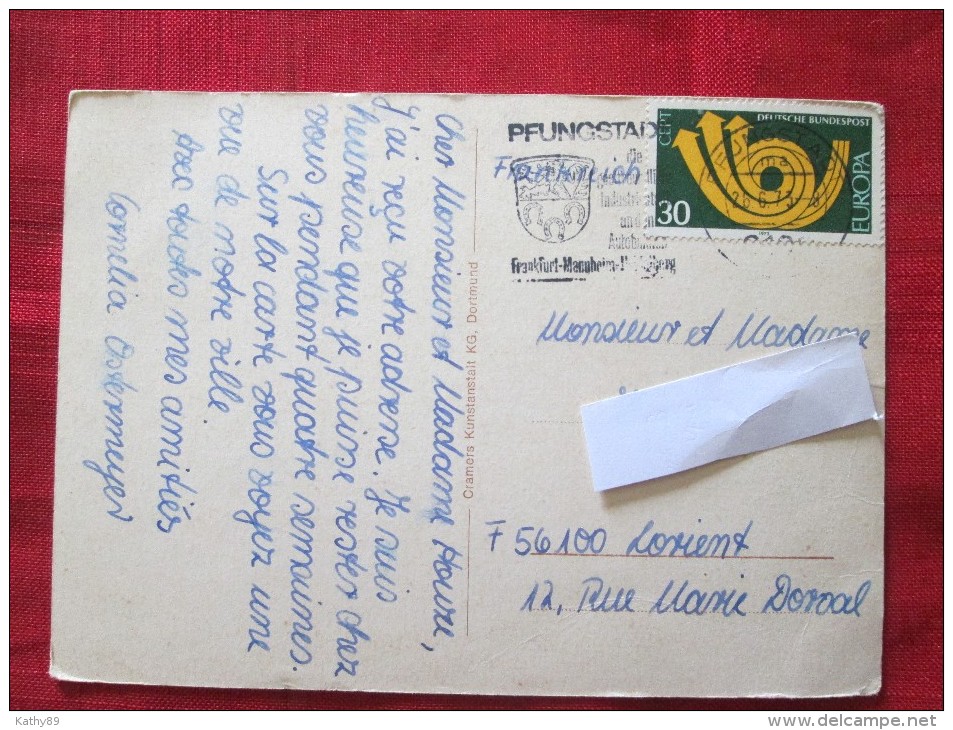 Cher Monsieur et Madame Houre,
J'ai reçu votre adresse. Je suis
heureuse que je puisse rester chez
vous pendant quatre semaines.
Sur la carte vous voyez une
vue de notre ville
Avec toutes mes amitiés
Cornelia
Cramers Kunstanstalt KG, Dortmund
PFUNGSTAD
die
Industriestadt
und an
Autobahn
Frankfurt-Mannheim-Heidelberg
Frankreich
CEPT
DEUTSCHE BUNDESPOST
30
EUROPA
1973
Monsieur et Madame
F 56100 Lorient
12, Rue Marie Dorval
Kathy89
http://www.delcampe.net